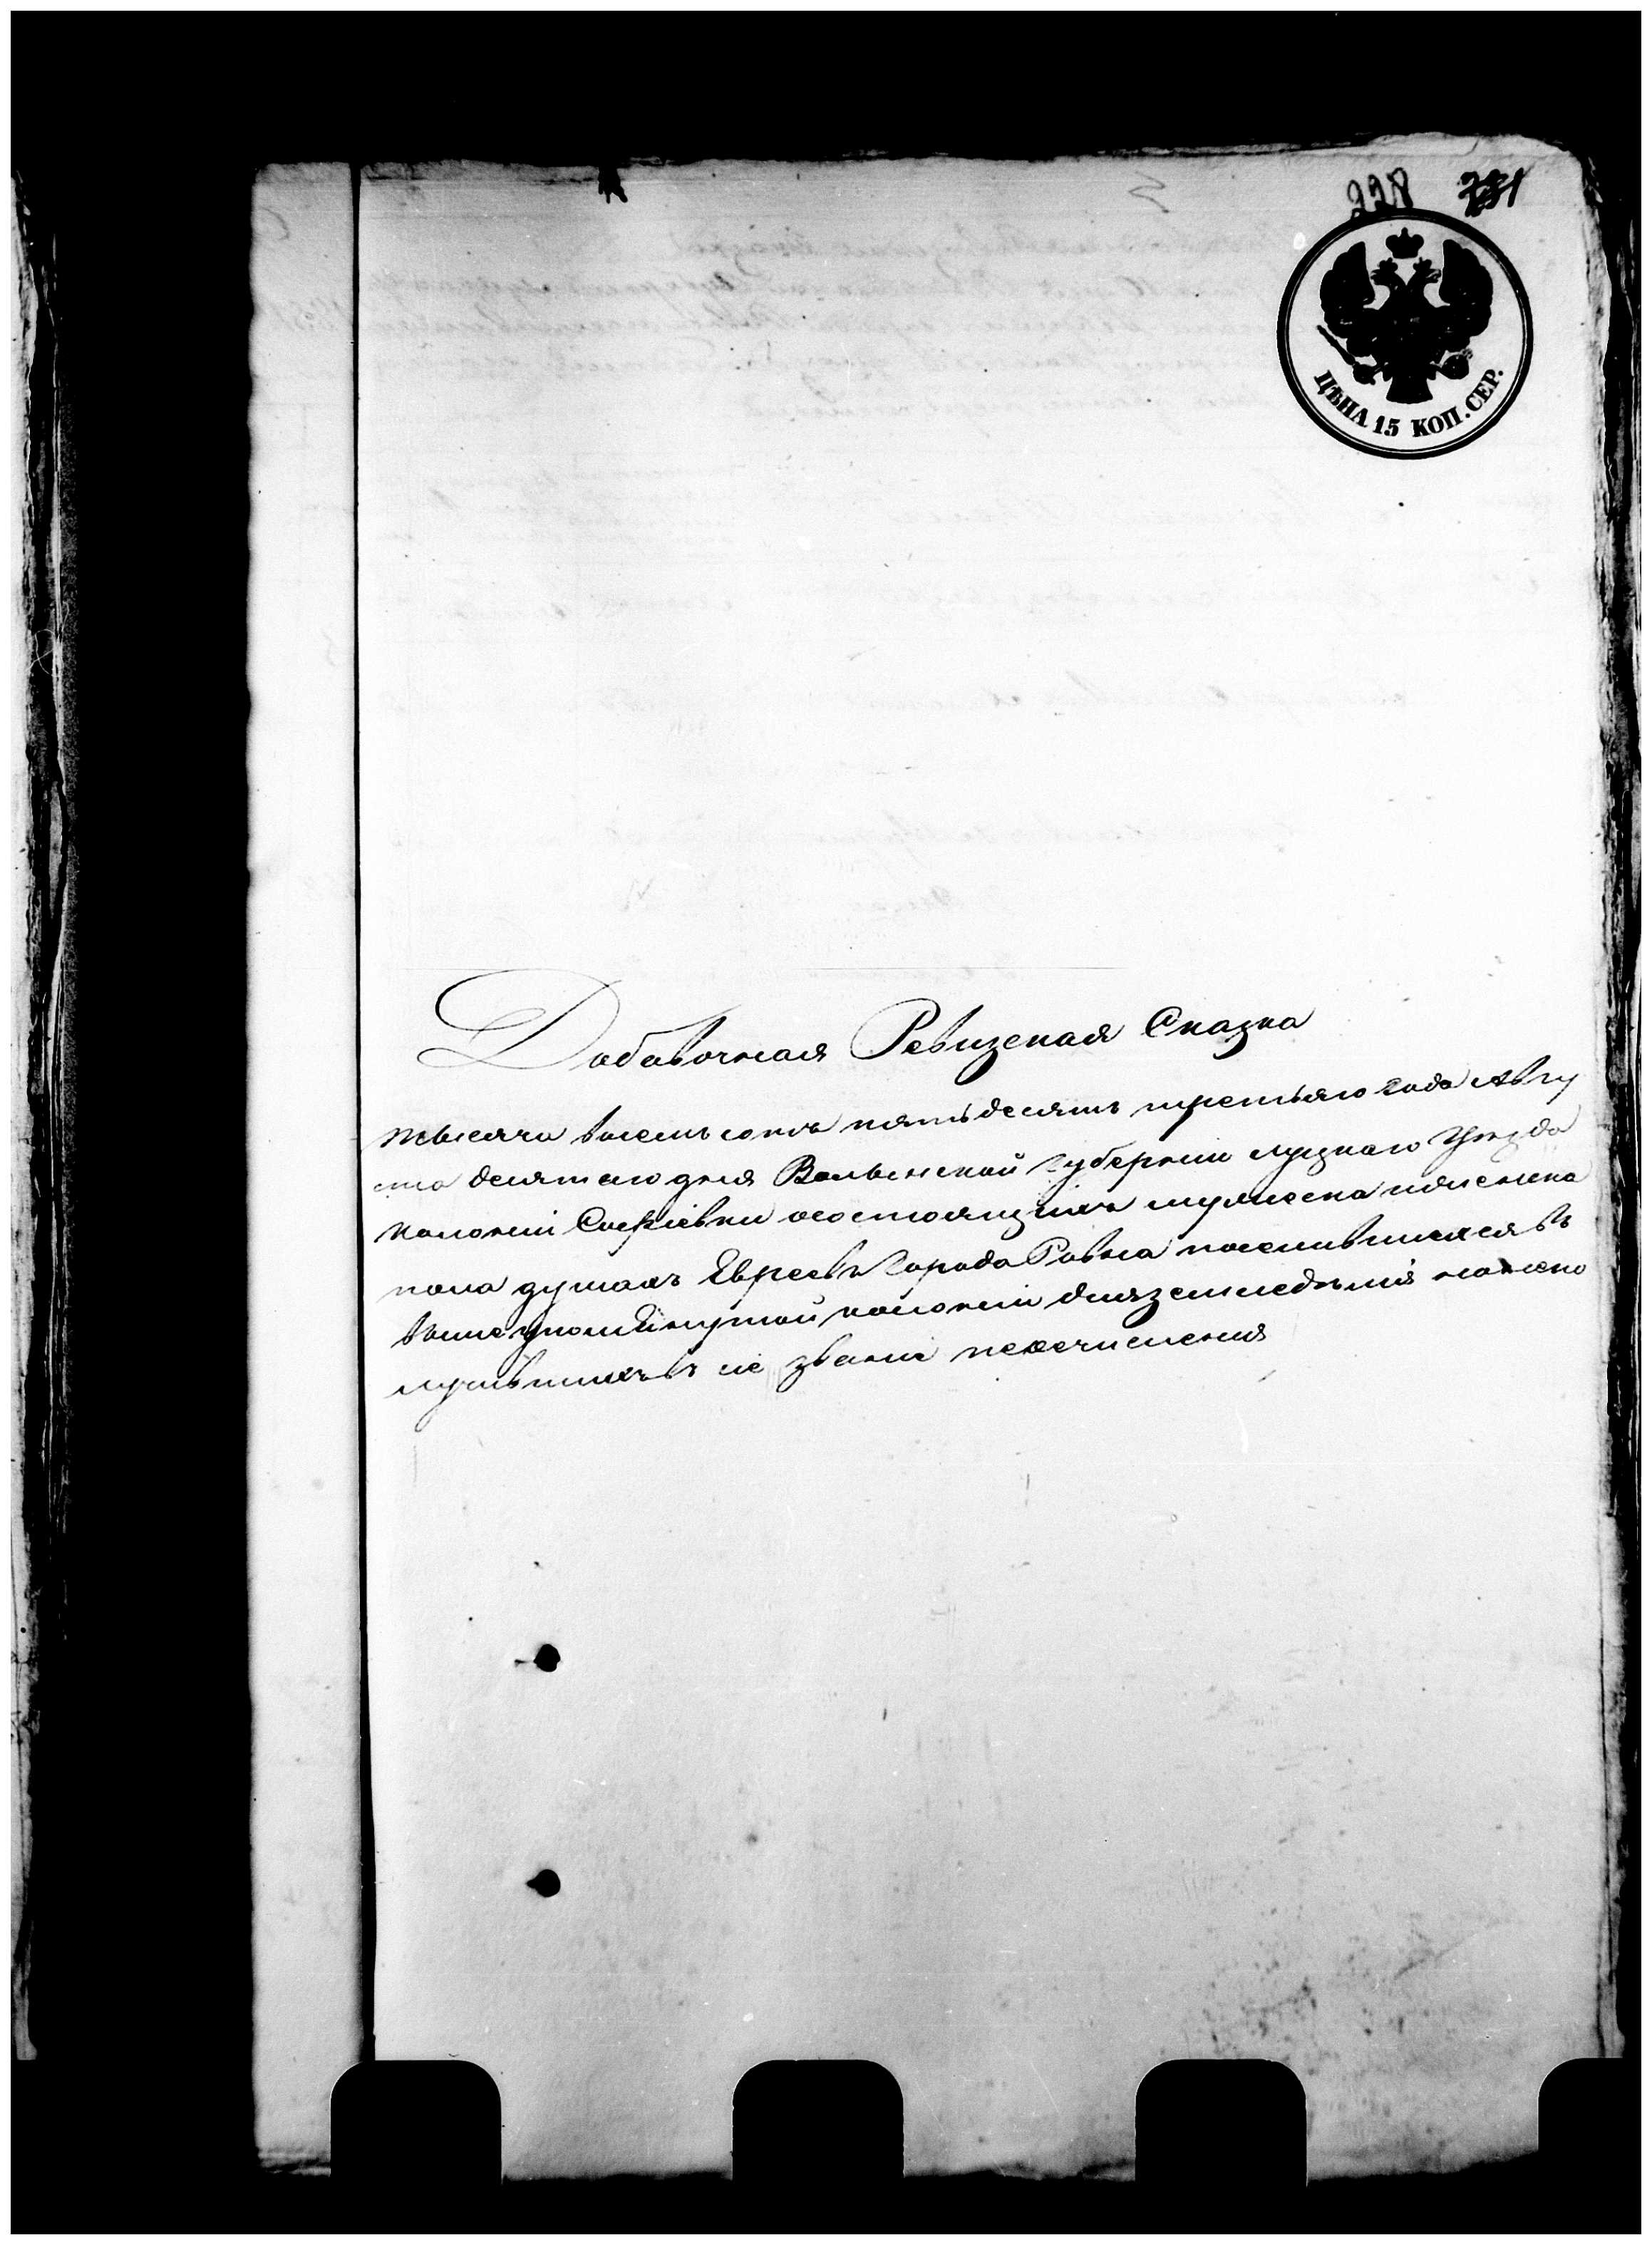 228 231
ЦѢНА 15 КОП. СЕР.
Добавочная Ревизская Сказка
тысяча восемьсотъ пятьдесятъ третьяго года Авгу
ста десятаго дня Волынской губерніи луцкаго Уѣзда
колоніи Софіевки осостоящихъ мужеска иженска
пола душахъ Евреевъ города Ровна поселившихся въ
вышеупомянутой колоніи дляземледѣлія но
лучившихъ въ сіе званіе перечисленія